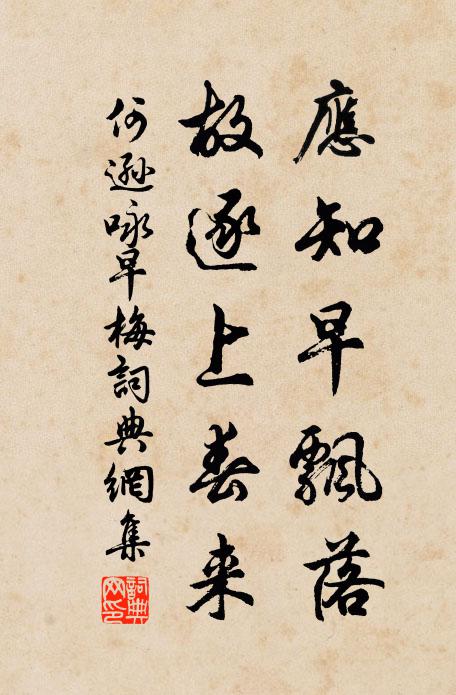 應知早飄落
故逐上春来
何遜咏早梅詞典網集
詞典網印